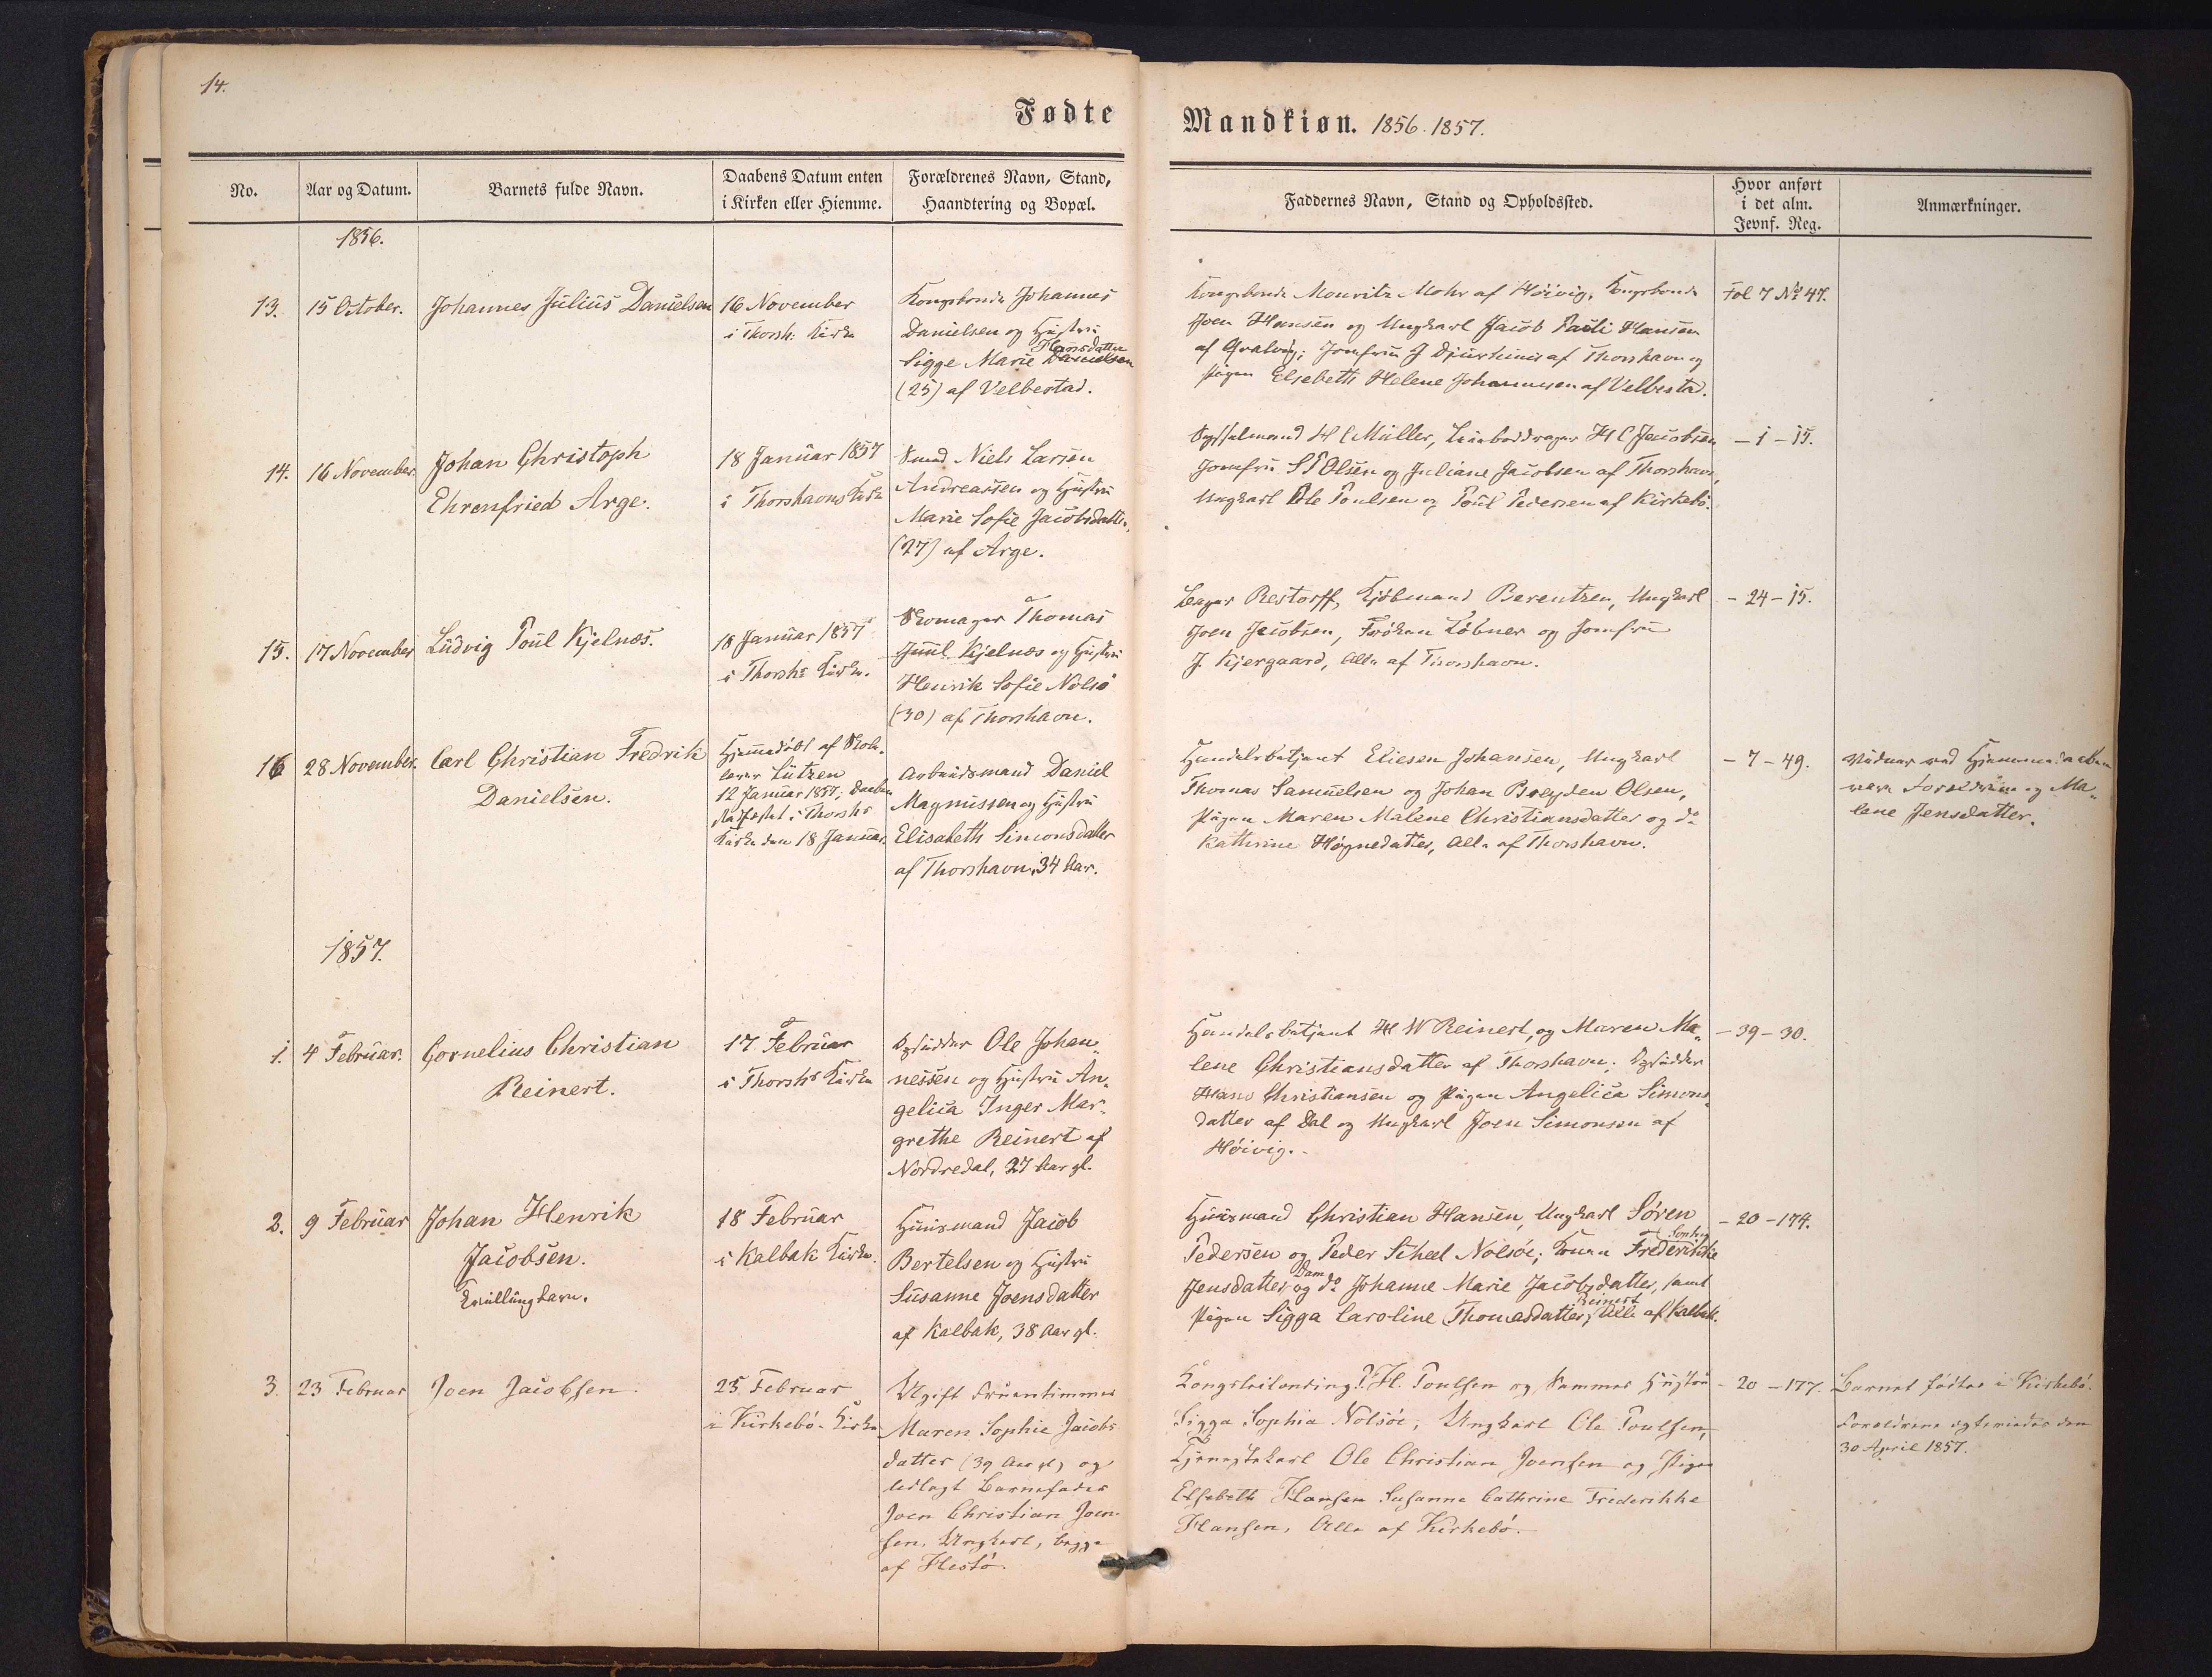 14.
Fødte
Mandkiøn. 1856. 1857.
No.
Aar og Datum.
Barnets fulde Navn.
Daabens Datum enten
i Kirken eller Hiemme.
Forældrenes Navn, Stand,
Haandtering og Bopæl.
Faddernes Navn, Stand og Opholdssted.
Hvor anført
i det alm.
Jevnf. Reg.
Anmærkninger.
1856.
13.
15 October.
Johannes Julius Danielsen
16 November
i Thorsh: Kirke
Kongsbonde Johannes
Danielsen og Hustru
Hansdatter
Sigge Marie Danielsen
(25) af Velbestad.
Kongsbonde Mouritz Mohr af Höivig, Kongsbonde
Joen Hansen og Ungkarl Jacob Pauli Hansen
af Qvalvig; Jomfru J Djurhuus af Thorshavn og
Pigen Elsebeth Helene Johannesen af Velbestad.
Fol 7 No 47.
14.
16 November.
Johan Christoph
Ehrenfried Arge.
18 Januar 1857
i Thorshavns Kirke
Smed Niels Larsen
Andreassen og Hustru
Marie Sofie Jacobsdatter,
(27) af Arge.
Sysselmand H C Müller, H C Jacobsen
Jomfru Olsen og Juliane Jacobsen af Thorshavn,
Ungkarl Ole Poulsen og Poul Pedersen af Kirkebö.
- 1 - 15.
15.
17 November
Ludvig Poul Kjelnæs.
18 Januar 1857
i Thorshs Kirke.
Skomager Thomas
Juul Kjelnæs og Hustru
Henrik Sofie Nolsö
(30) af Thorshavn.
Bager Restorff, Kjöbmand Berentzen, Ungkarl
Joen Jacobsen, Fröken Löbner og Jomfru
J. Kjergaard, Alle af Thorshavn.
- 24 - 15.
16
28 November.
Carl Christian Fredrik
Danielsen.
Hjemmedöbt af Skole-
lærer Lützen
12 Januar 1857; Daaben
stadfæstet i Thorshs
Kirke den 18 Januar.
Arbeidsmand Daniel
Magnussen og Hustru
Elisabeth Simonsdatter
af Thorshavn, 34 Aar.
Handelsbetjent Eliesen Johansen, Ungkarl
Thomas Samuelsen og Johan Broyden Olsen,
Pigen Maren Malene Christiansdatter og do
Kathrine Högnedatter, Alle af Thorshavn.
- 7 - 49.
Vidner ved Hjemmedaaben
vare Forældrene og Ma-
lene Jensdatter.
1857.
1.
4 Februar.
Cornelius Christian
Reinert.
17 Februar
i Thorshs Kirke
Opsidder Ole Johan-
nessen og Hustru An-
gelica Inger Mar-
grethe Reinert af
Nordredal, 27 Aar gl.
Handelsbetjent H W Reinert, og Maren Ma-
lene Christiansdatter af Thorshavn; Opsidder
Hans Christiansen og Pigen Angelica Simons-
datter af Dal og Ungkarl Joen Simonsen af
Höivig.
- 39 - 30.
2.
9 Februar
Johan Henrik
Jacobsen.
Tvillingbarn.
18 Februar
i Kalbak Kirke.
Huusmand Jacob
Bertelsen og Hustru
Susanne Joensdatter
af Kalbak, 38 Aar gl.
Huusmand Christian Hansen, Ungkarl Sören
Pedersen og Peder Scheel Nolsöe; Konen Frederikke
Jensdatter og do Johanne Marie Jacobsdatter, samt
Reinert
Pigen Sigga Caroline Thomasdatter, Alle af Kalbak.
- 20 - 174.
3.
23 Februar
Joen Jacobsen.
25 Februar
i Kirkebö- Kirke
Ugift Fruentimmer
Maren Sophie Jacobs
datter (39 Aar gl) og
udlagt Barnefader
Joen Christian Joen-
sen, Ungkarl, begge
af Hestö.
P. H. Poulsen og Sammes Hustru
Sigga Sophia Nolsöe, Ungkarl Ole Poulsen,
Tjenestekarl Ole Christian Joensen og Pigen
Elsebeth Hansen Susanne Cathrine Frederikke
Hansen, Alle af Kirkebö.
- 20 - 177.
Barnet födtes i Kirkebö.
Forældrene ægteviedes den
30 April 1857.